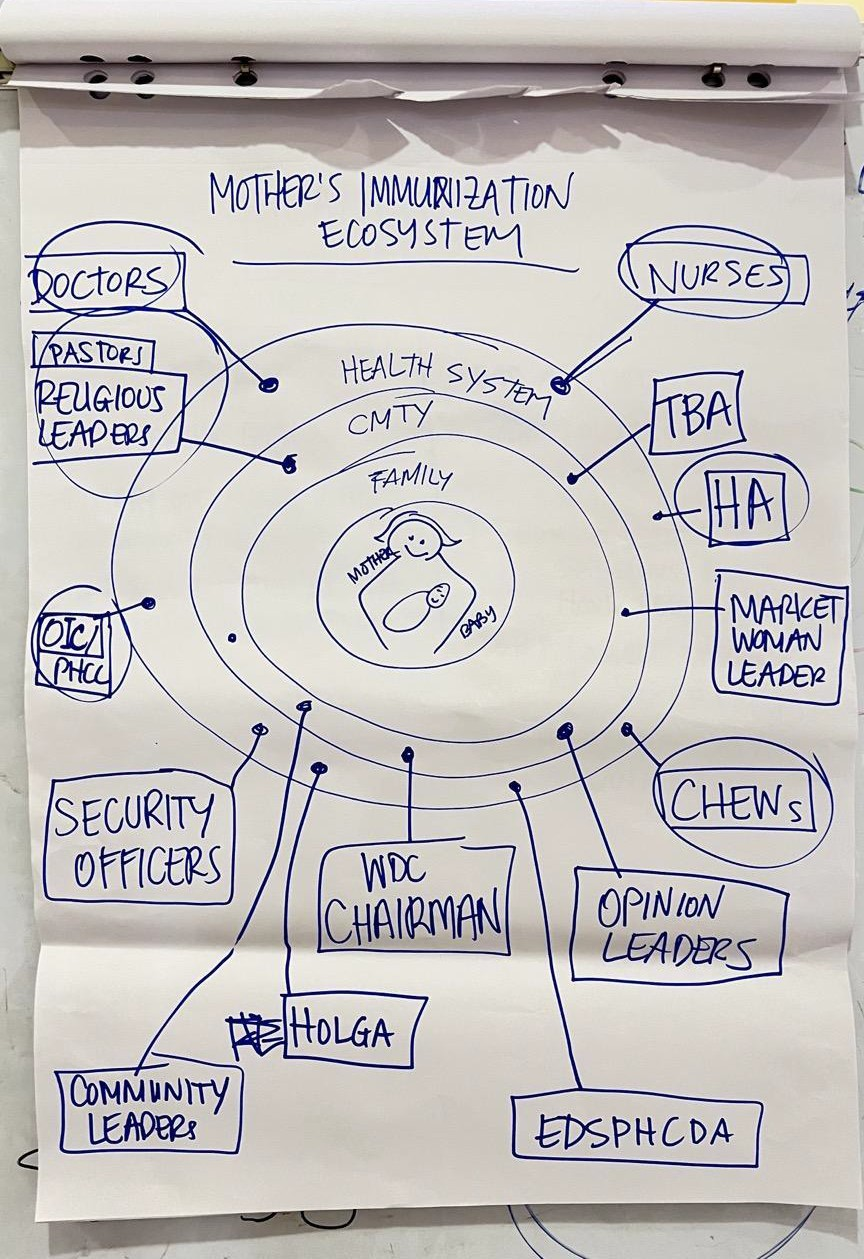 MOTHER'S IMMUNIZATION
ECOSYSTEM
DOCTORS
NURSES
PASTORS
RELIGIOUS
LEADERS
HEALTH SYSTEM
CMTY
FAMILY
MOTHER
BABY
TBA
HA
OIC/
PHCC
MARKET
WOMAN
LEADER
SECURITY
OFFICERS
CHEWs
WDC
CHAIRMAN
OPINION
LEADERS
HOLGA
COMMUNITY
LEADERS
EDSPHCDA